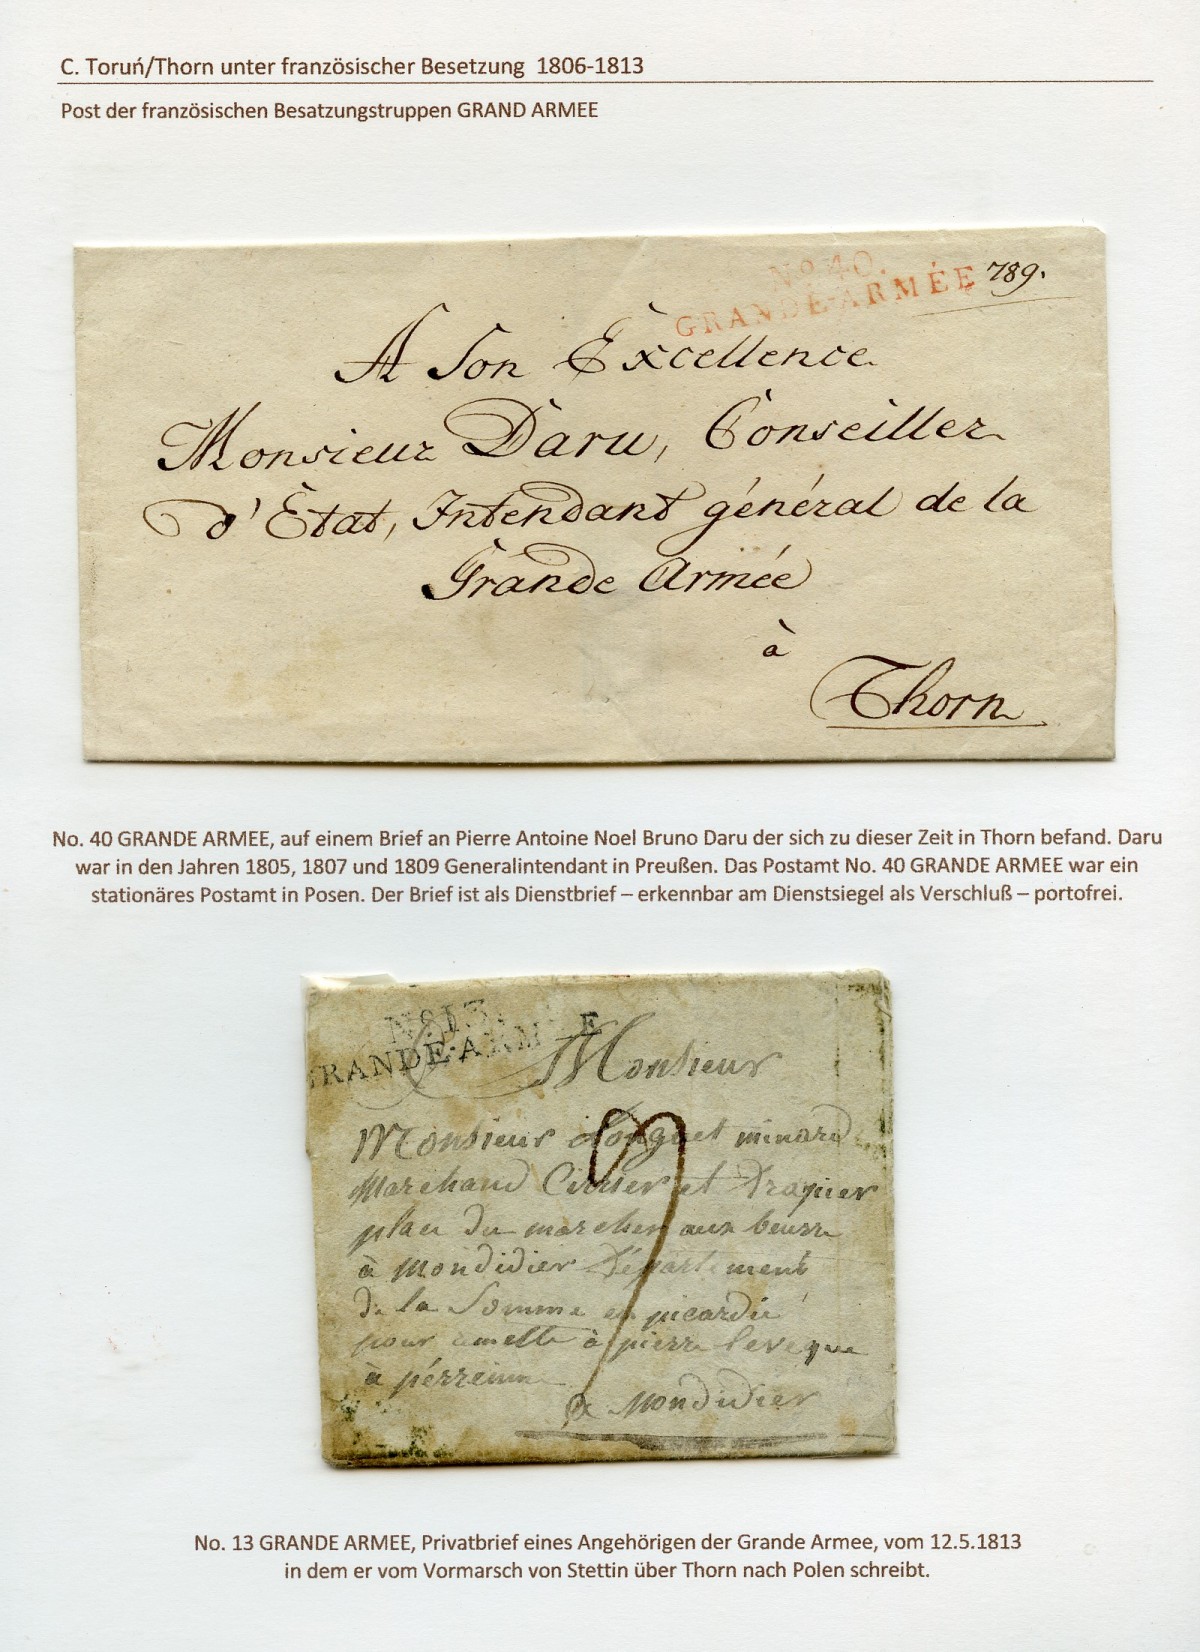 C. Toruń/Thorn unter französischer Besetzung 1806-1813
Post der französischen Besatzungstruppen GRAND ARMEE
No 40.
GRANDE-ARMÉE
789.
A Son Excellence
Monsieur Daru, Conseiller
d'Ètat, Intendant général de la
Grande Armée
à
Thorn
No. 40 GRANDE ARMEE, auf einem Brief an Pierre Antoine Noel Bruno Daru der sich zu dieser Zeit in Thorn befand. Daru
war in den Jahren 1805, 1807 und 1809 Generalintendant in Preußen. Das Postamt No. 40 GRANDE ARMEE war ein
stationäres Postamt in Posen. Der Brief ist als Dienstbrief – erkennbar am Dienstsiegel als Verschluß – portofrei.
No 13.
GRANDE-ARMÉE
Monsieur
Monsieur Longuet minard
Marchand Cirier et Drapier
place du marcher aux beurre
à Mondidier Département
de la Somme en picardie
pour remettre à pierre leveque
à
a Mondidier
No. 13 GRANDE ARMEE, Privatbrief eines Angehörigen der Grande Armee, vom 12.5.1813
in dem er vom Vormarsch von Stettin über Thorn nach Polen schreibt.